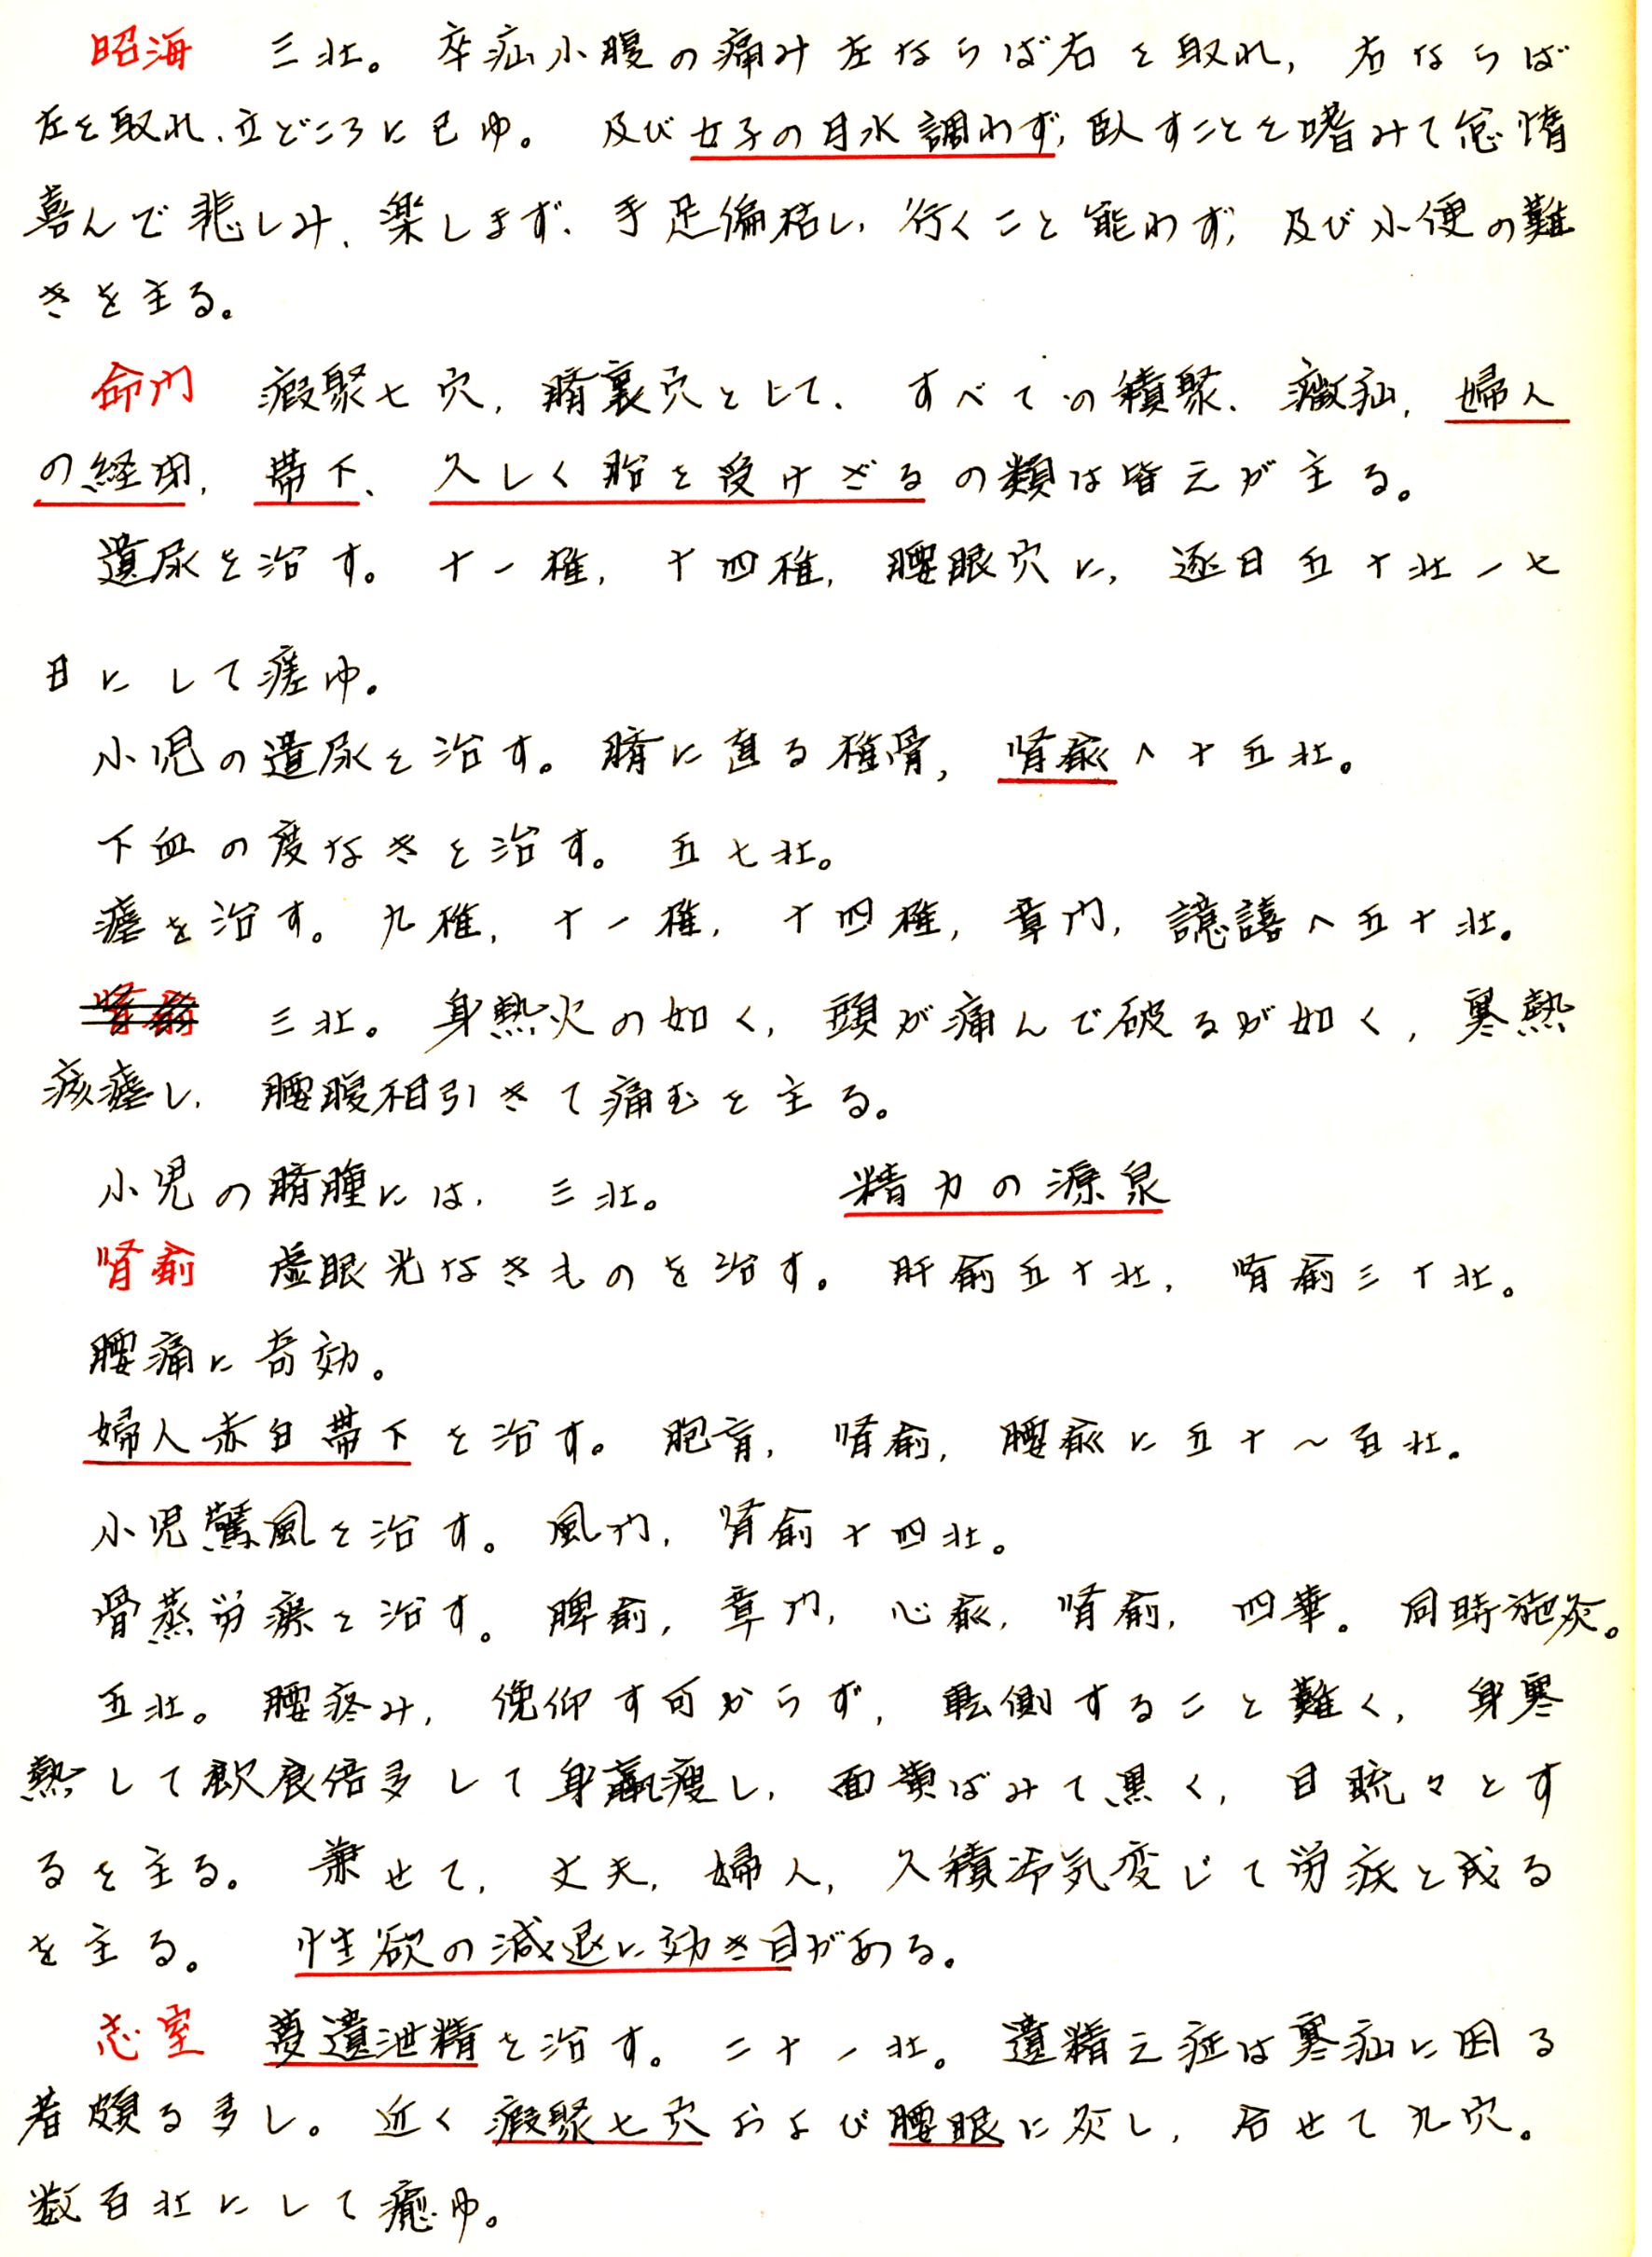 昭海　三壮。卒疝小腹の痛み左ならば右を取れ，右ならば
左を取れ、立どころに已ゆ。　及び女子の月水調わず，臥すことを嗜みて怠惰
喜んで悲しみ、楽しまず、手足偏枯し，行くこと能わず，及び小便の難
きを主る。
命門　瘕聚七穴，臍裏穴として、すべての積聚、癥疝，婦人
の経閉，帯下、久しく胎を受けざるの類は皆之が主る。
遺尿を治す。十一椎，十四椎，腰眼穴に，逐日五十壮一七
日にして瘥ゆ。
小児の遺尿を治す。臍に直る椎骨，腎兪へ十五壮。
下血の度なきを治す。五七壮。
瘧を治す。九椎，十一椎，十四椎，章門，譩譆へ五十壮。
腎兪　三壮。身熱火の如く，頭が痛んで破るが如く，寒熱
痎瘧し，腰腹相引きて痛むを主る。
小児の臍腫には，三壮。　精力の源泉
腎兪　虚眼光なきものを治す。肝兪五十壮，腎兪三十壮。
腰痛に奇効。
婦人赤白帯下を治す。胞肓，腎兪，腰兪に五十〜百壮。
小児驚風を治す。風門，腎兪十四壮。
骨蒸労瘵を治す。脾兪，章門，心兪，腎兪，四華。同時施灸。
五壮。腰疼み，俛仰す可からず，転側すること難く，身寒
熱して飲食倍多して身羸痩し，面黄ばみて黒く，目䀮々とす
るを主る。　兼せて，丈夫，婦人，久積冷気変じて労疾と成る
を主る。　性欲の減退に効き目がある。
志室　夢遺泄精を治す。二十一壮。遺精之症は寒疝に因る
者頗る多し。近く瘕聚七穴および腰眼に灸し，合せて九穴。
数百壮にして癒ゆ。